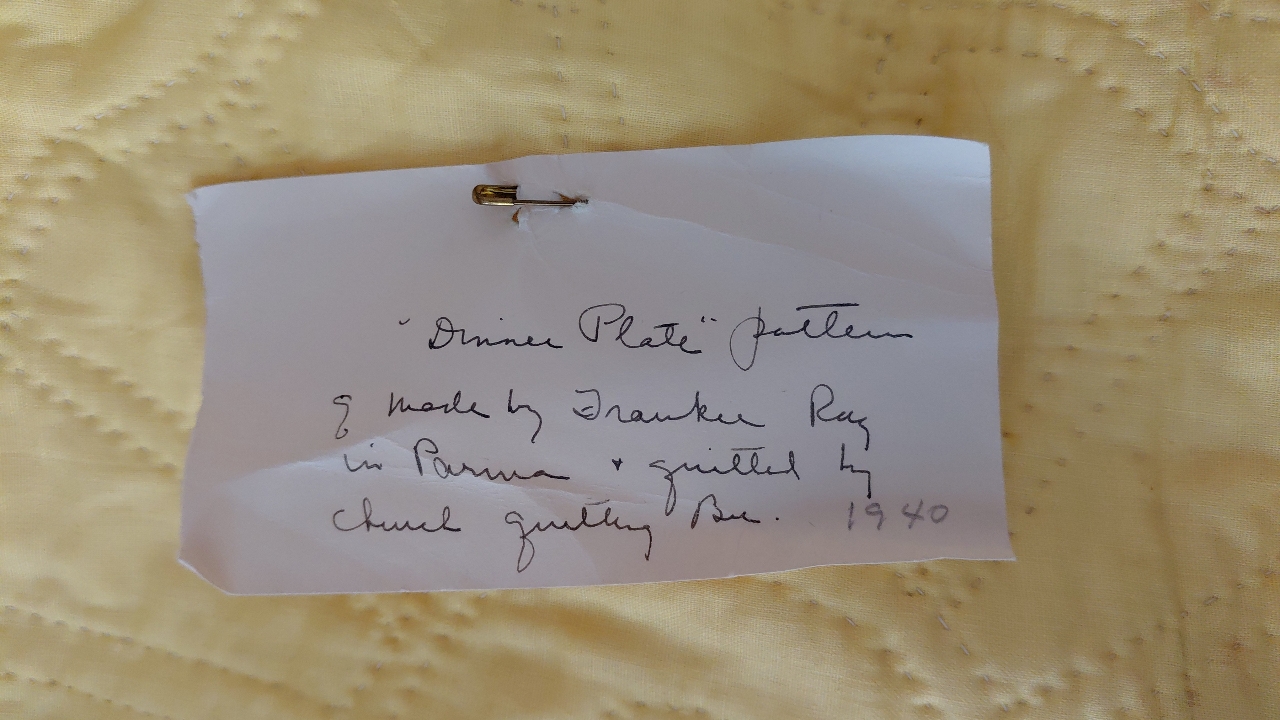 "Dinner Plate" pattern
made by Frankie Ray
in Parma + quilted by
church quilting Bee. 1940